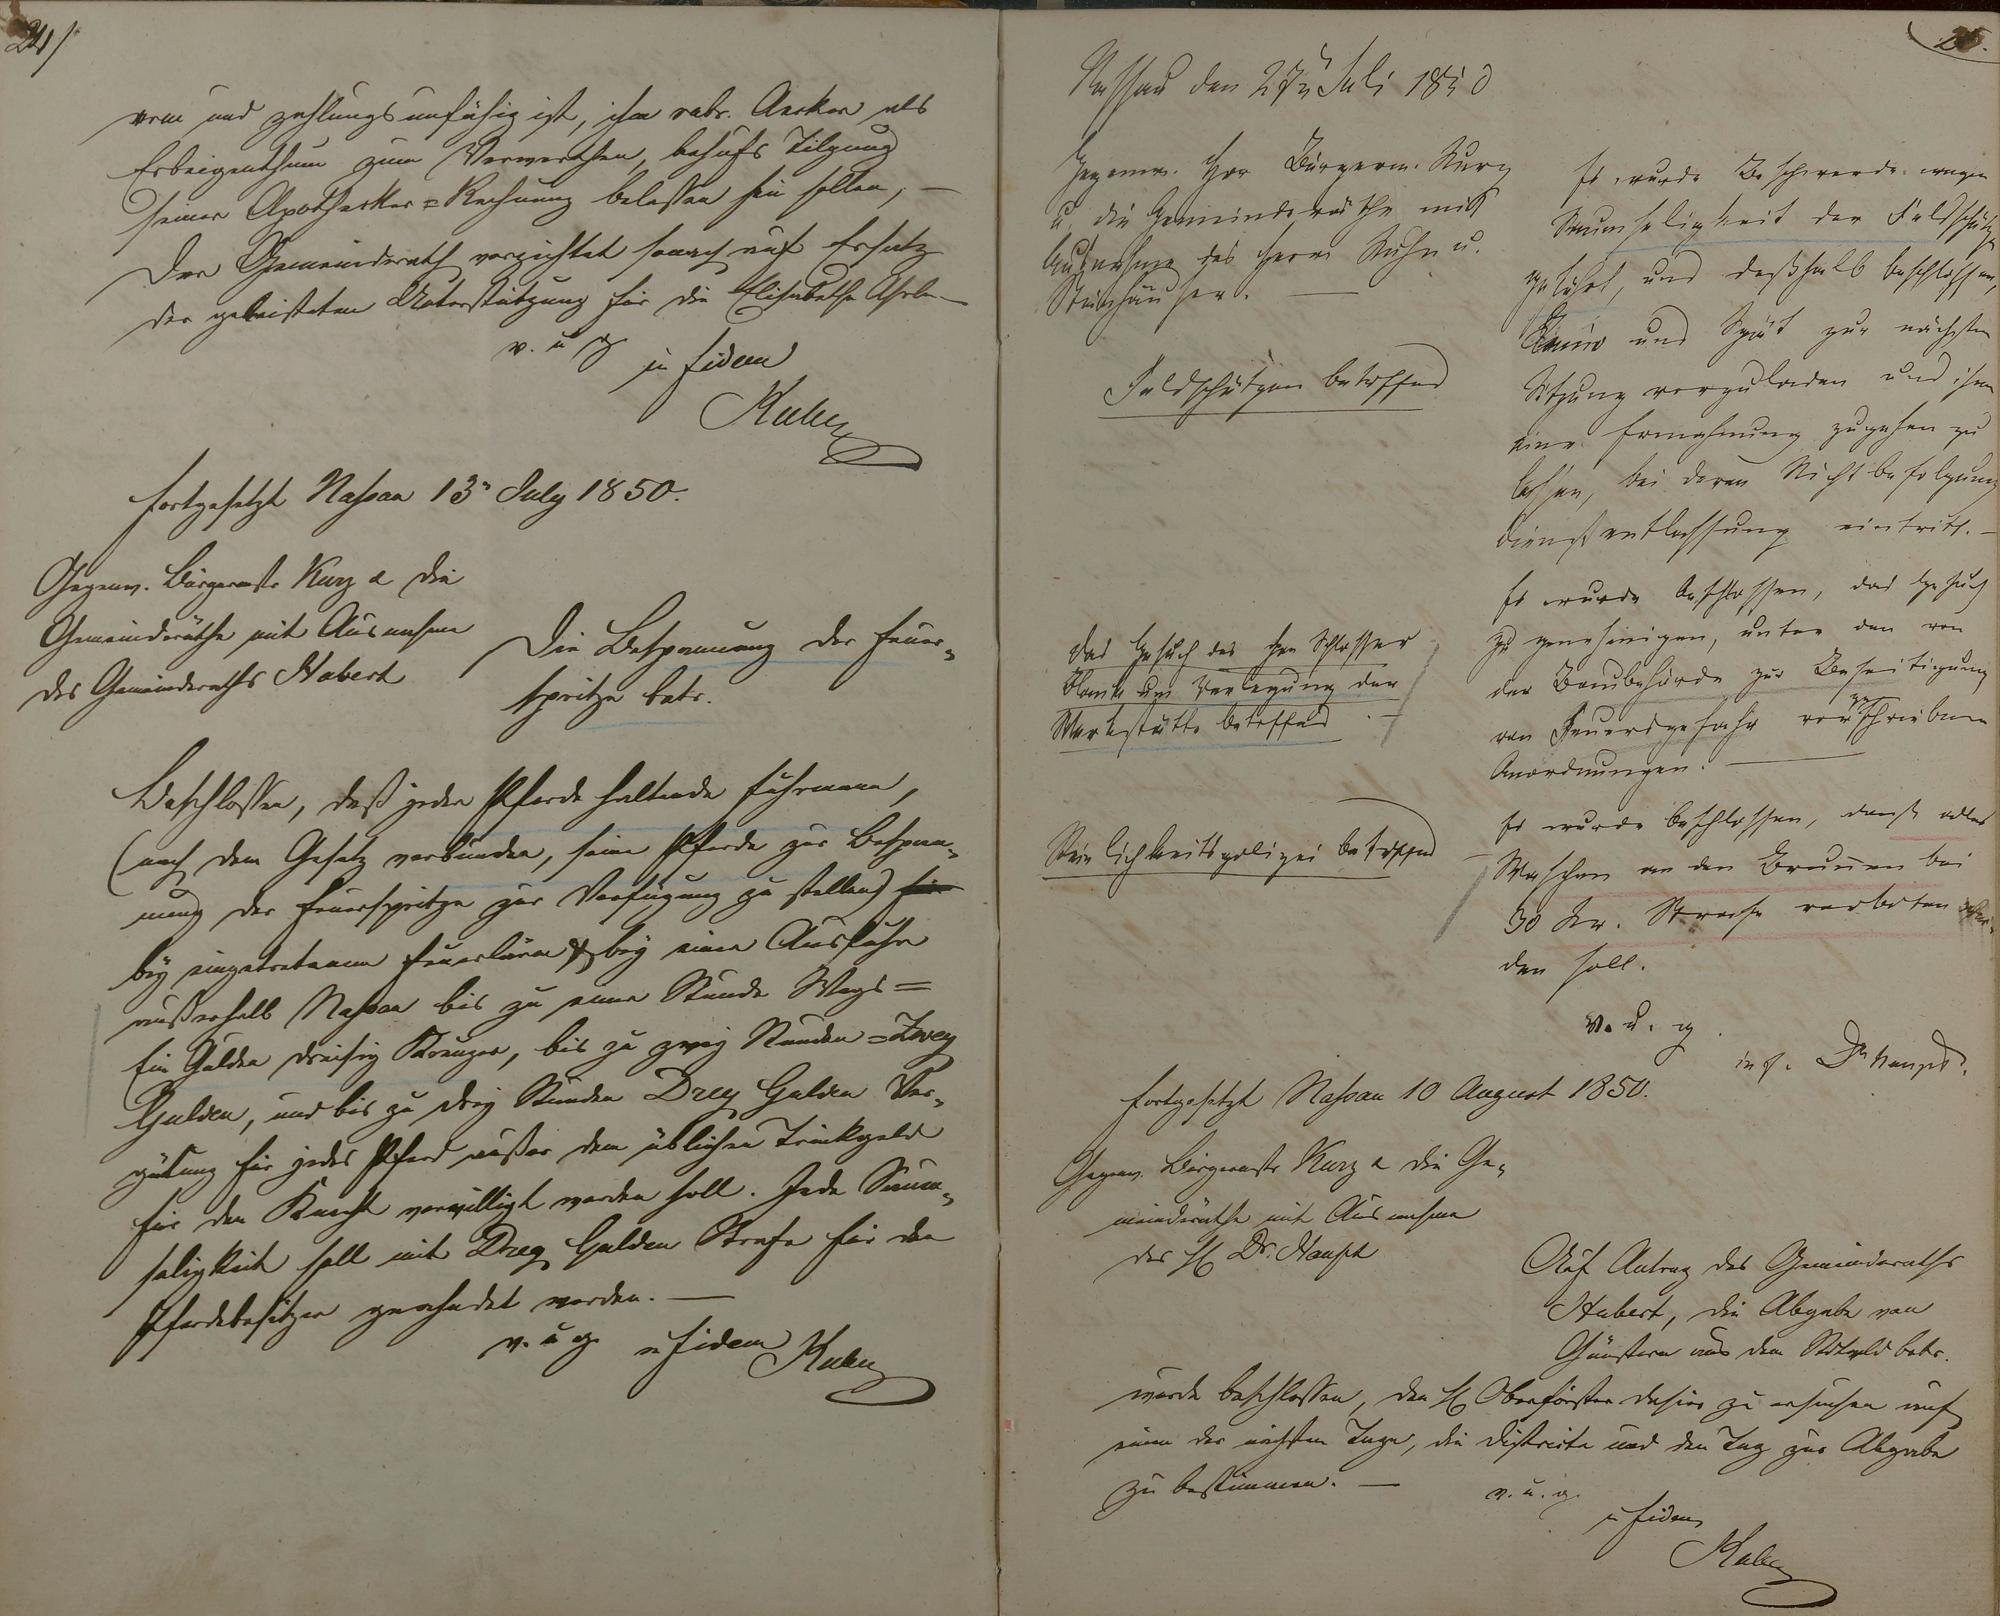 24/
arm und zahlungsunfähig ist, ihm rubr. Aecker als
Erbeigenthum zum Verwerthen, behufs Tilgung
seiner Apotheker=Rechnung belassen sein sollen, —
Der Gemeinderath verzichtet sonach auf Ersatz
der geleisteten Unterstützung für die Elisabetha
v. u g
in fidem
fortgesetzt Nassau 13n July 1850.
Gegenw. Bürgermstr Kurz & die
Gemeinderäthe mit Ausnahme
des Gemeinderaths Habert
Die Bespannung der Feuer-
spritze betr.
Beschlossen, daß jeder Pferde haltende Fuhrmann,
(nach dem Gesetz verbunden, seine Pferde zur Bespan-
nung der Feuerspritze zur Verfügung zu stellen)
bey eingetretenem Feuerlärm & bey einer Ausfuhr
außerhalb Nassau bis zu einer Stunde Wegs =
Ein Gulden dreisig Kreuzer, bis zu zwey Stunden = Zwey
Gulden, und bis zu drey Stunden Drey Gulden Ver-
gütung für jedes Pferd außer dem üblichen Trinkgeld
für den Knecht verwilligt werden soll. Jede Saum-
seligkeit soll mit Drey Gulden Strafe für den
Pferdebesitzer geahndet werden. —
v. u g. in fidem
25.
Nassau den 27n Juli 1850
Gegenw. Herr Bürgerm. Kurz
u. die Gemeinderäthe mit
Ausnahme des Herrn Kuhn u.
Steinhäuser. —
Feldschützen betreffend
Es wurde Beschwerde wegen
Saumseligkeit der Feldschützen
geführt, und deßhalb beschlossen,
und Spät zur nächsten
Sitzung vorzuladen und ihnen
eine Ermahnung zugehen zu
lassen, bei deren Nichtbefolgung
Dienstentlassung eintritt. —
Das Gesuch des Hrn Schlosser
um Verlegung der
Werkstätte betreffend . —
Es wurde beschlossen, das Gesuch
zu genehmigen, unter den von
der Baubehörde zur Beseitigung
von Feuersgefahr vorzuschreibenen
Anordnungen. —
Reinlichkeitspolizei betreffend
Es wurde beschlossen, daß alles
Waschen an den Brunnen bei
30 Kr. Strafe verboten wer-
den soll.
v. u. g.
in f. Dr Haupt.
fortgesetzt Nassau 10 August 1850.
Gegenw. Bürgermstr Kurz & die Ge-
meinderäthe mit Ausnahme
des H Dr. Haupt
Auf Antrag des Gemeinderaths
Habert, die Abgabe von
Günstern aus dem Stdtwld betr.
wurde beschlossen, den H Oberförster dahier zu ersuchen auf
einen der nächsten Tage, die Districte und den Tag zur Abgabe
zu bestimmen. —
v. u. g.
in fidem